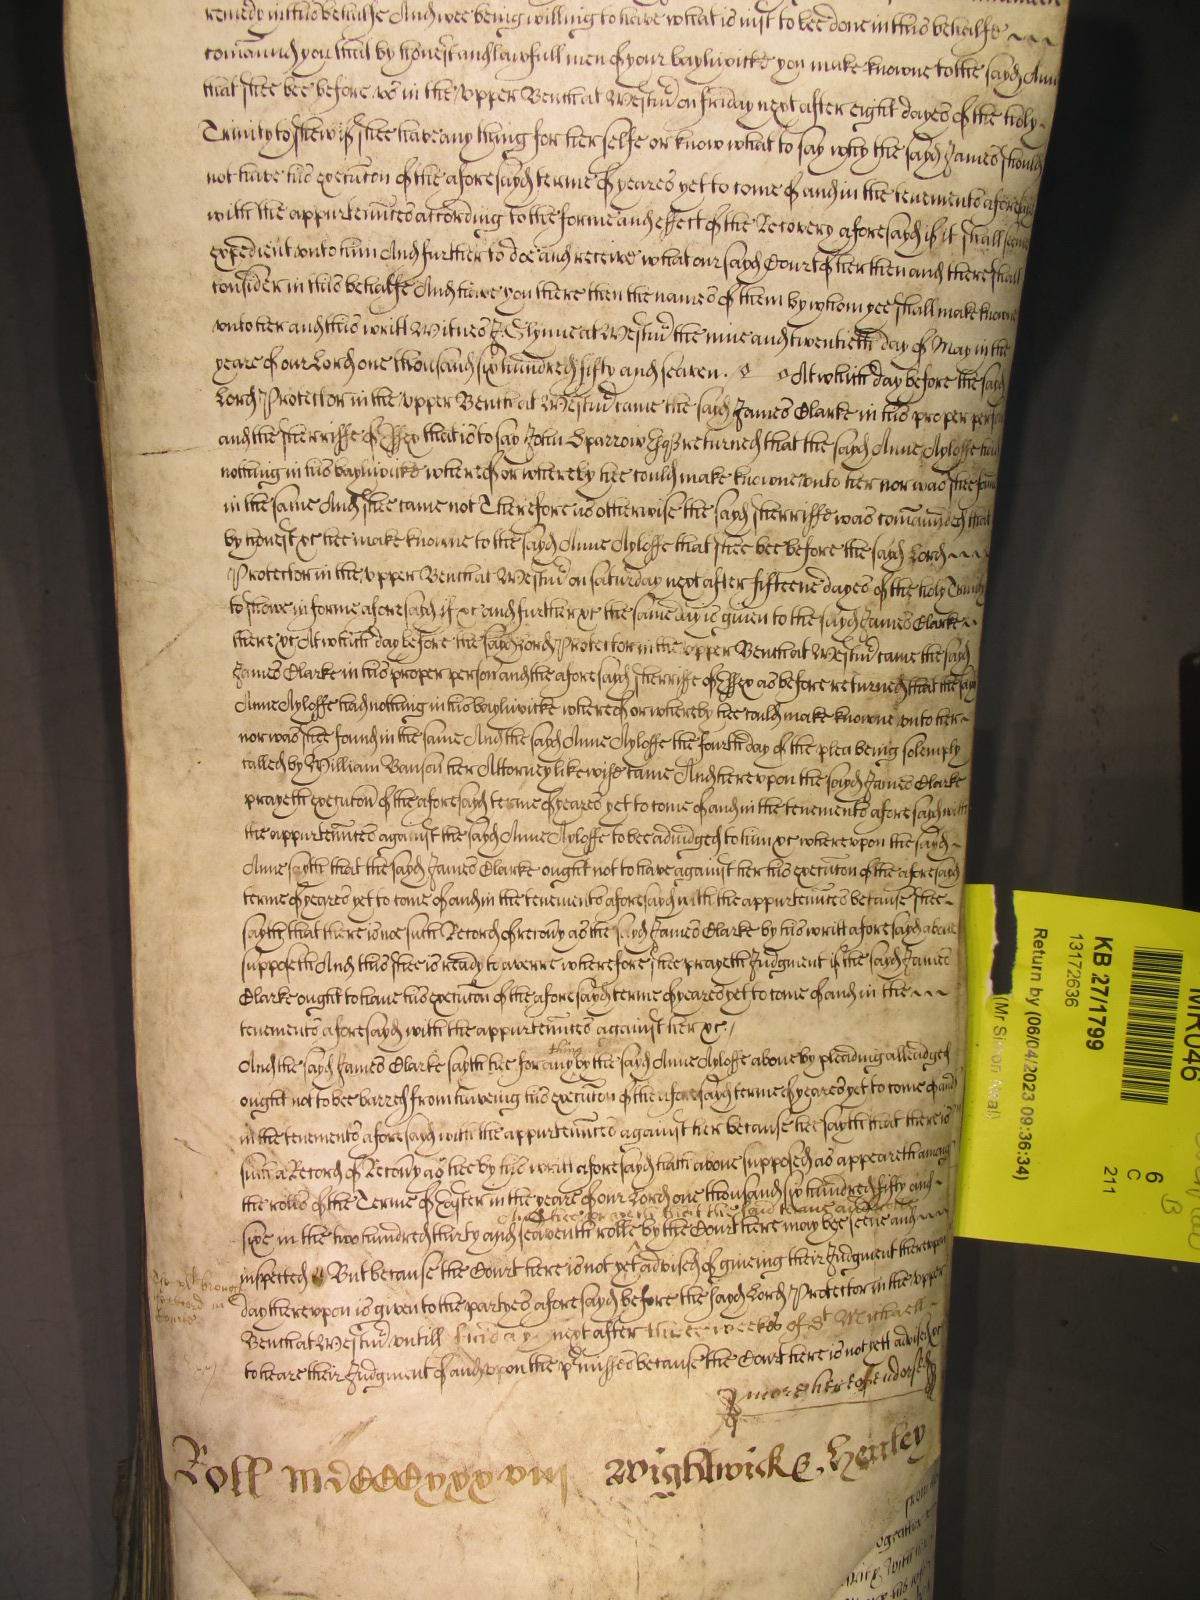 remedy in this behalfe And wee being willing to have what is iust to bee done in this behalfe
comaund you that by honest and lawfull men of your bayliwicke you make knowne to the sayd Ann
that shee bee before us in the upper Bench at Westm̄ on friday next after eight dayes of the holy
Trinity to shew if shee have any thing for her selfe or know what to say why the sayd James should
not have his execucōn of the aforesayd terme of yeares yet to come of and in the tenements aforesayd
with the appurtenn̄ces according to the forme and effect of the Recovery aforesayd if it shall seeme
expedient unto him And further to doe and receive what our sayd Court of her then and there shall
consider in this behalfe And have you there then the names of them by whom yee shall make knowne
unto her and this writt Witnes J. Glynne at Westm̄ the nine and twentieth day of May in the
yeare of our Lord one thousand six hundred fifty and seaven. At which day before the sayd
Lord Protector in the upper Bench at Westm̄ came the sayd James Clarke in his proper person
and the sherriffe of Essex that is to say John Sparrow Esqr returned that the sayd Anne Ayloffe had
nothing in his bayliwicke whereof or whereby hee could make knowne unto her nor was shee found
in the same And shee came not Therefore as otherwise the sayd sherriffe was comaunded that
by honest &c hee make knowne to the sayd Anne Ayloffe that shee bee before the sayd Lord
Protector in the upper Bench at Westm̄ on saturday next after fifteene dayes of the holy Trinity
to shewe in forme aforesayd if &c and further &c the same day is given to the sayd James Clarke
there &c At which day before the sayd Lord Protector in the upper Bench at Westm̄ came the sayd
James Clarke in his proper person and the aforesayd sherriffe of Essex as before returned that the sayd
Anne Ayloffe had nothing in his bayliwicke whereof or whereby hee could make knowne unto her
nor was shee found in the same And the sayd Anne Ayloffe the fourth day of the plea being solemply
called by William Banson her Attorney likewise came And hereupon the sayd James Clarke
prayeth execucōn of the aforesayd terme of yeares yet to come of and in the tenements aforesayd with
the appurtenn̄ces against the sayd Anne Ayloffe to bee adiudged to him &c whereupon the sayd
Anne sayth that the sayd James Clarke ought not to have against her his execucōn of the aforesayd
terme of yeares yet to come of and in the tenements aforesayd with the appurtenn̄ces because shee
sayth that there is noe such Record of recovy as the sayd James Clarke by his writt aforesayd above
supposeth And this shee is ready to averre wherefore shee prayeth Judgment if the sayd James
Clarke ought to have his execucōn of the aforesayd terme of yeares yet to come of and in the
tenements aforesayd with the appurtenn̄ces against her &c
And the sayd James Clarke sayth hee for any thing by the sayd Anne Ayloffe above by pleading alleadged
ought not to bee barred from haveing his execucōn of the aforesayd terme of yeares yet to come of and
in the tenements aforesayd with the appurtenn̄ces against her because hee sayth that there is
such a Record of Recovy as hee by his writt aforesayd hath above supposed as appeareth among
the rolls of the Terme of Easter in the yeare of our Lord one thousand six hundred fifty and
sixe in the two hundred thirty and seaventh rolle by the Court here may bee seene and
inspected But because the Court here is not yet advised of giveing their Judgment thereupon
day thereupon is given to the partyes aforesayd before the sayd Lord Protector in the upper
Bench at Westm̄ untill friday next after three weekes of St Michaell
to heare their Judgment of and upon the p̄misses because the Court here is not yett advised &c
more hereof endorsed
Roll mdccccxxxviii Wightwicke, Henley
MR046
KB 27/1799
13172636
Return by (06/04/2023 09:36:34)
(Mr Simon Neal)
6
C
211
B